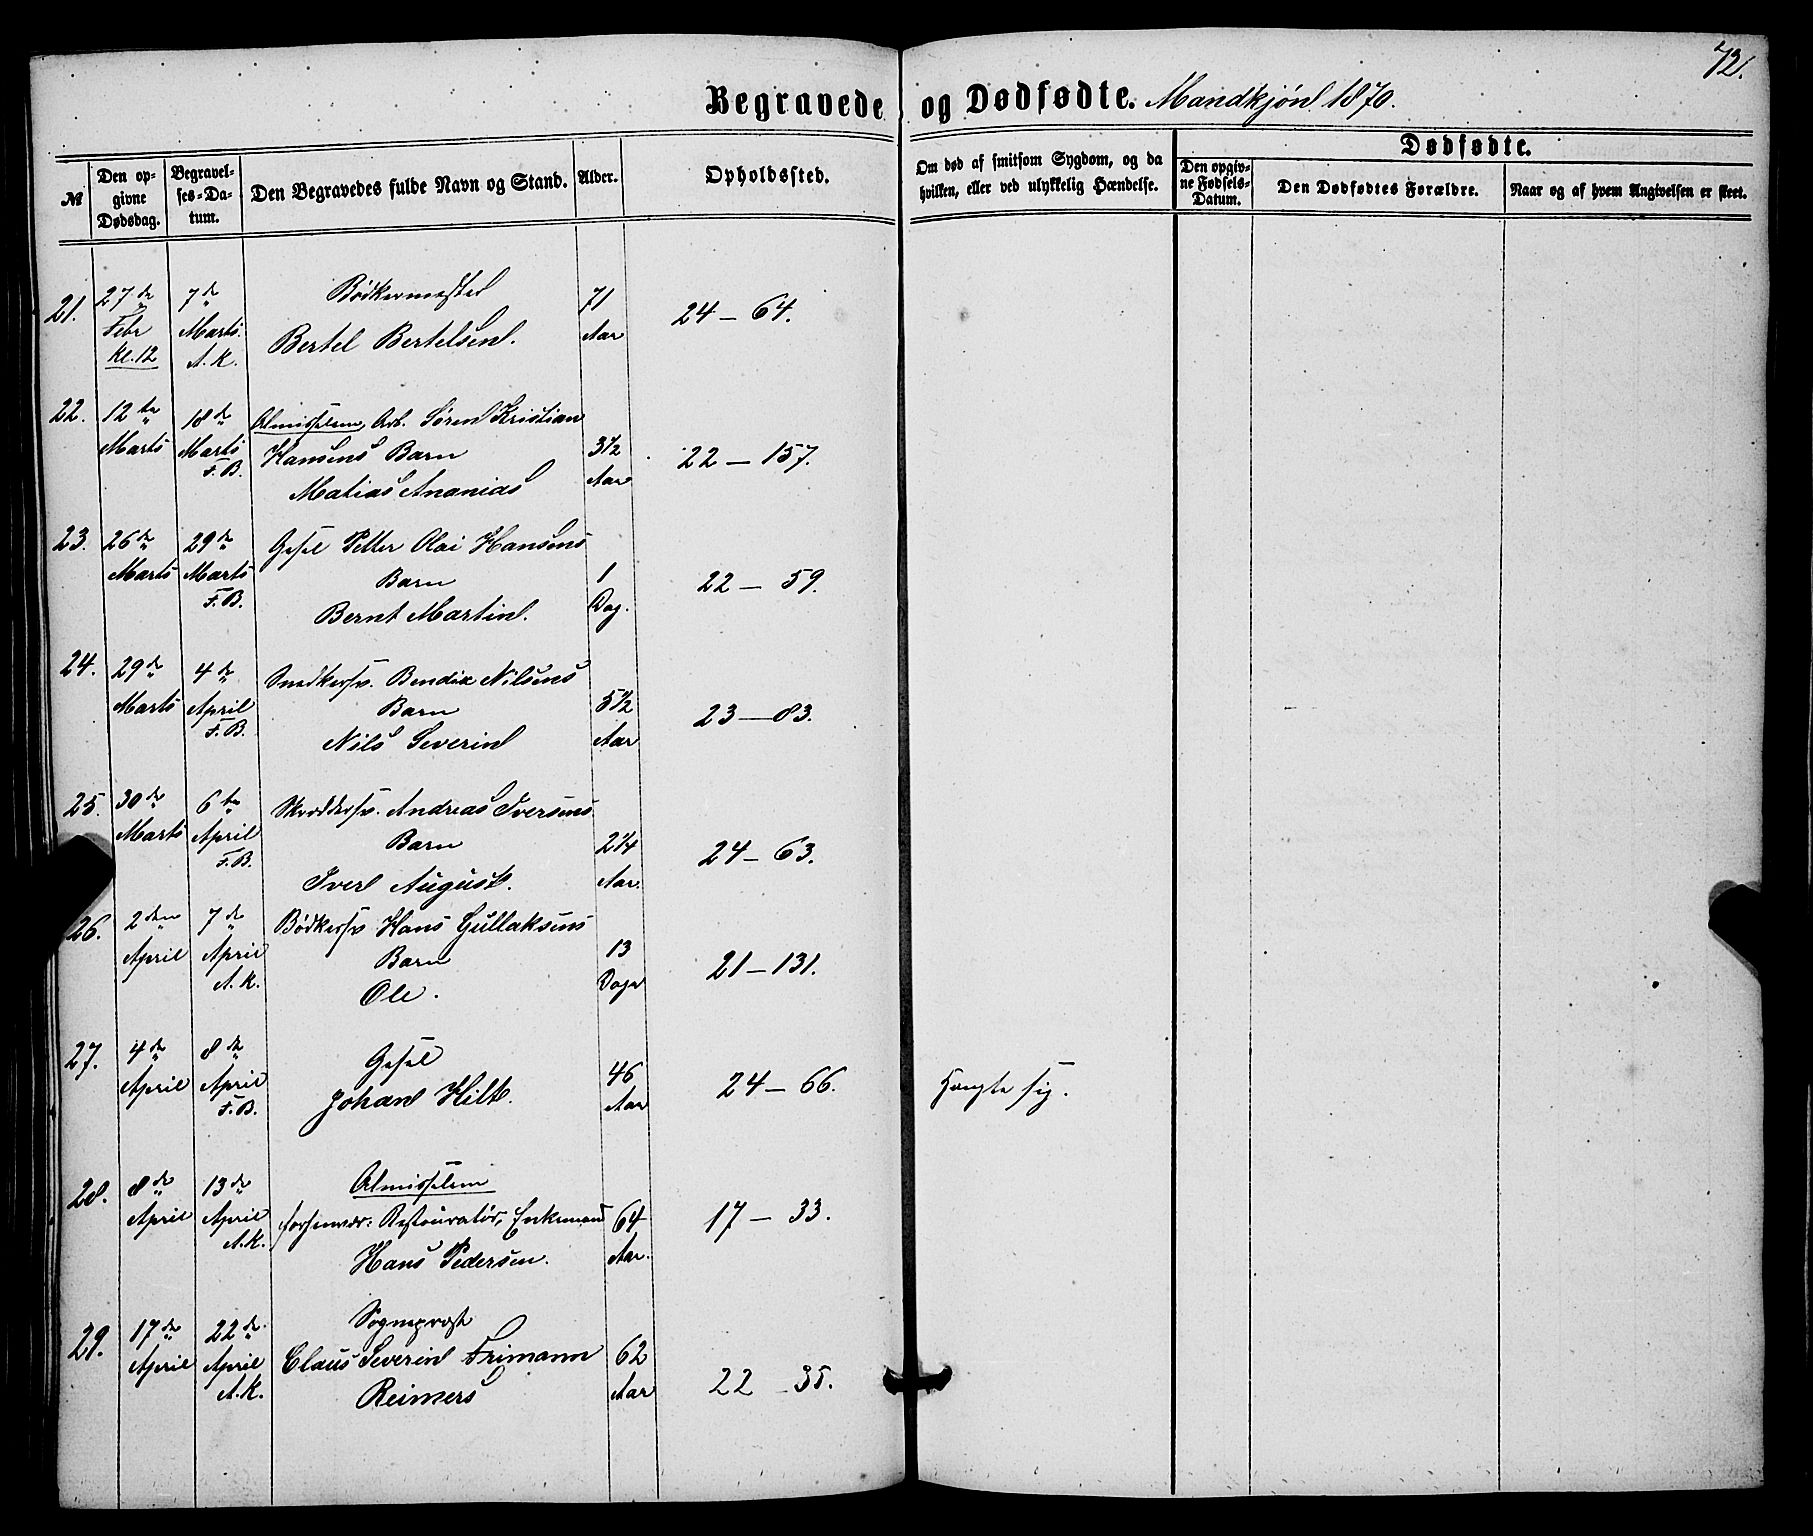 72.
Begravede og Dødfødte. Mandkjøn 1870.
№
Den opgivne Dødsdag.
Begravelses-Datum.
Den Begravedes fulde Navn og Stand.
Alder.
Opholdssted.
Om død af smitsom Sygdom, og da hvilken, eller ved ulykkelig Hændelse.
Dødfødte.
Den opgivne Fødsels-Datum.
Den Dødfødtes Forældre.
Naar og af hvem Angivelsen er skeet.
21. 27de Febr Kl. 12
7de Marts. A. K.
Bødkermester
Bertel Bertelsen.
71 Aar
24 — 64.
22. 12te Marts
18de Marts F. B.
Almisselem, Arb. Søren Kristian
Hansens Barn
Matias Ananias
3½ Aar
22 — 157.
23. 26de Marts
29de Marts F. B.
Gesel Petter Olai Hansens
Barn
Bernt Martin.
1 Dag.
22 — 59.
24. 29de Marts
4de April F. B.
Snedkersv. Bendix Nilsens
Barn
Nils Severin
5½ Aar
23 — 83.
25. 30de Marts
6te April F. B.
Skræddersv. Andreas Iversens
Barn
Iver August.
2¼ Aar.
24 — 63.
26. 2den April
7de April A. K.
Bødkersv Hans Gullaksens
Barn
Ole.
13 Dage
21 — 131.
27. 4de April
8de April F. B.
Gesel
Johan Hilt.
46 Aar
24 — 66.
Hængte sig.
28. 8de April
13de April A. K.
Almisselem
forhenvær: Restauratør, Enkemand
Hans Pedersen.
64 Aar.
17 — 33.
29. 17de April
22de April A. K.
Sogneprest
Claus Severin Frimann
Reimers
62 Aar
22 — 35.